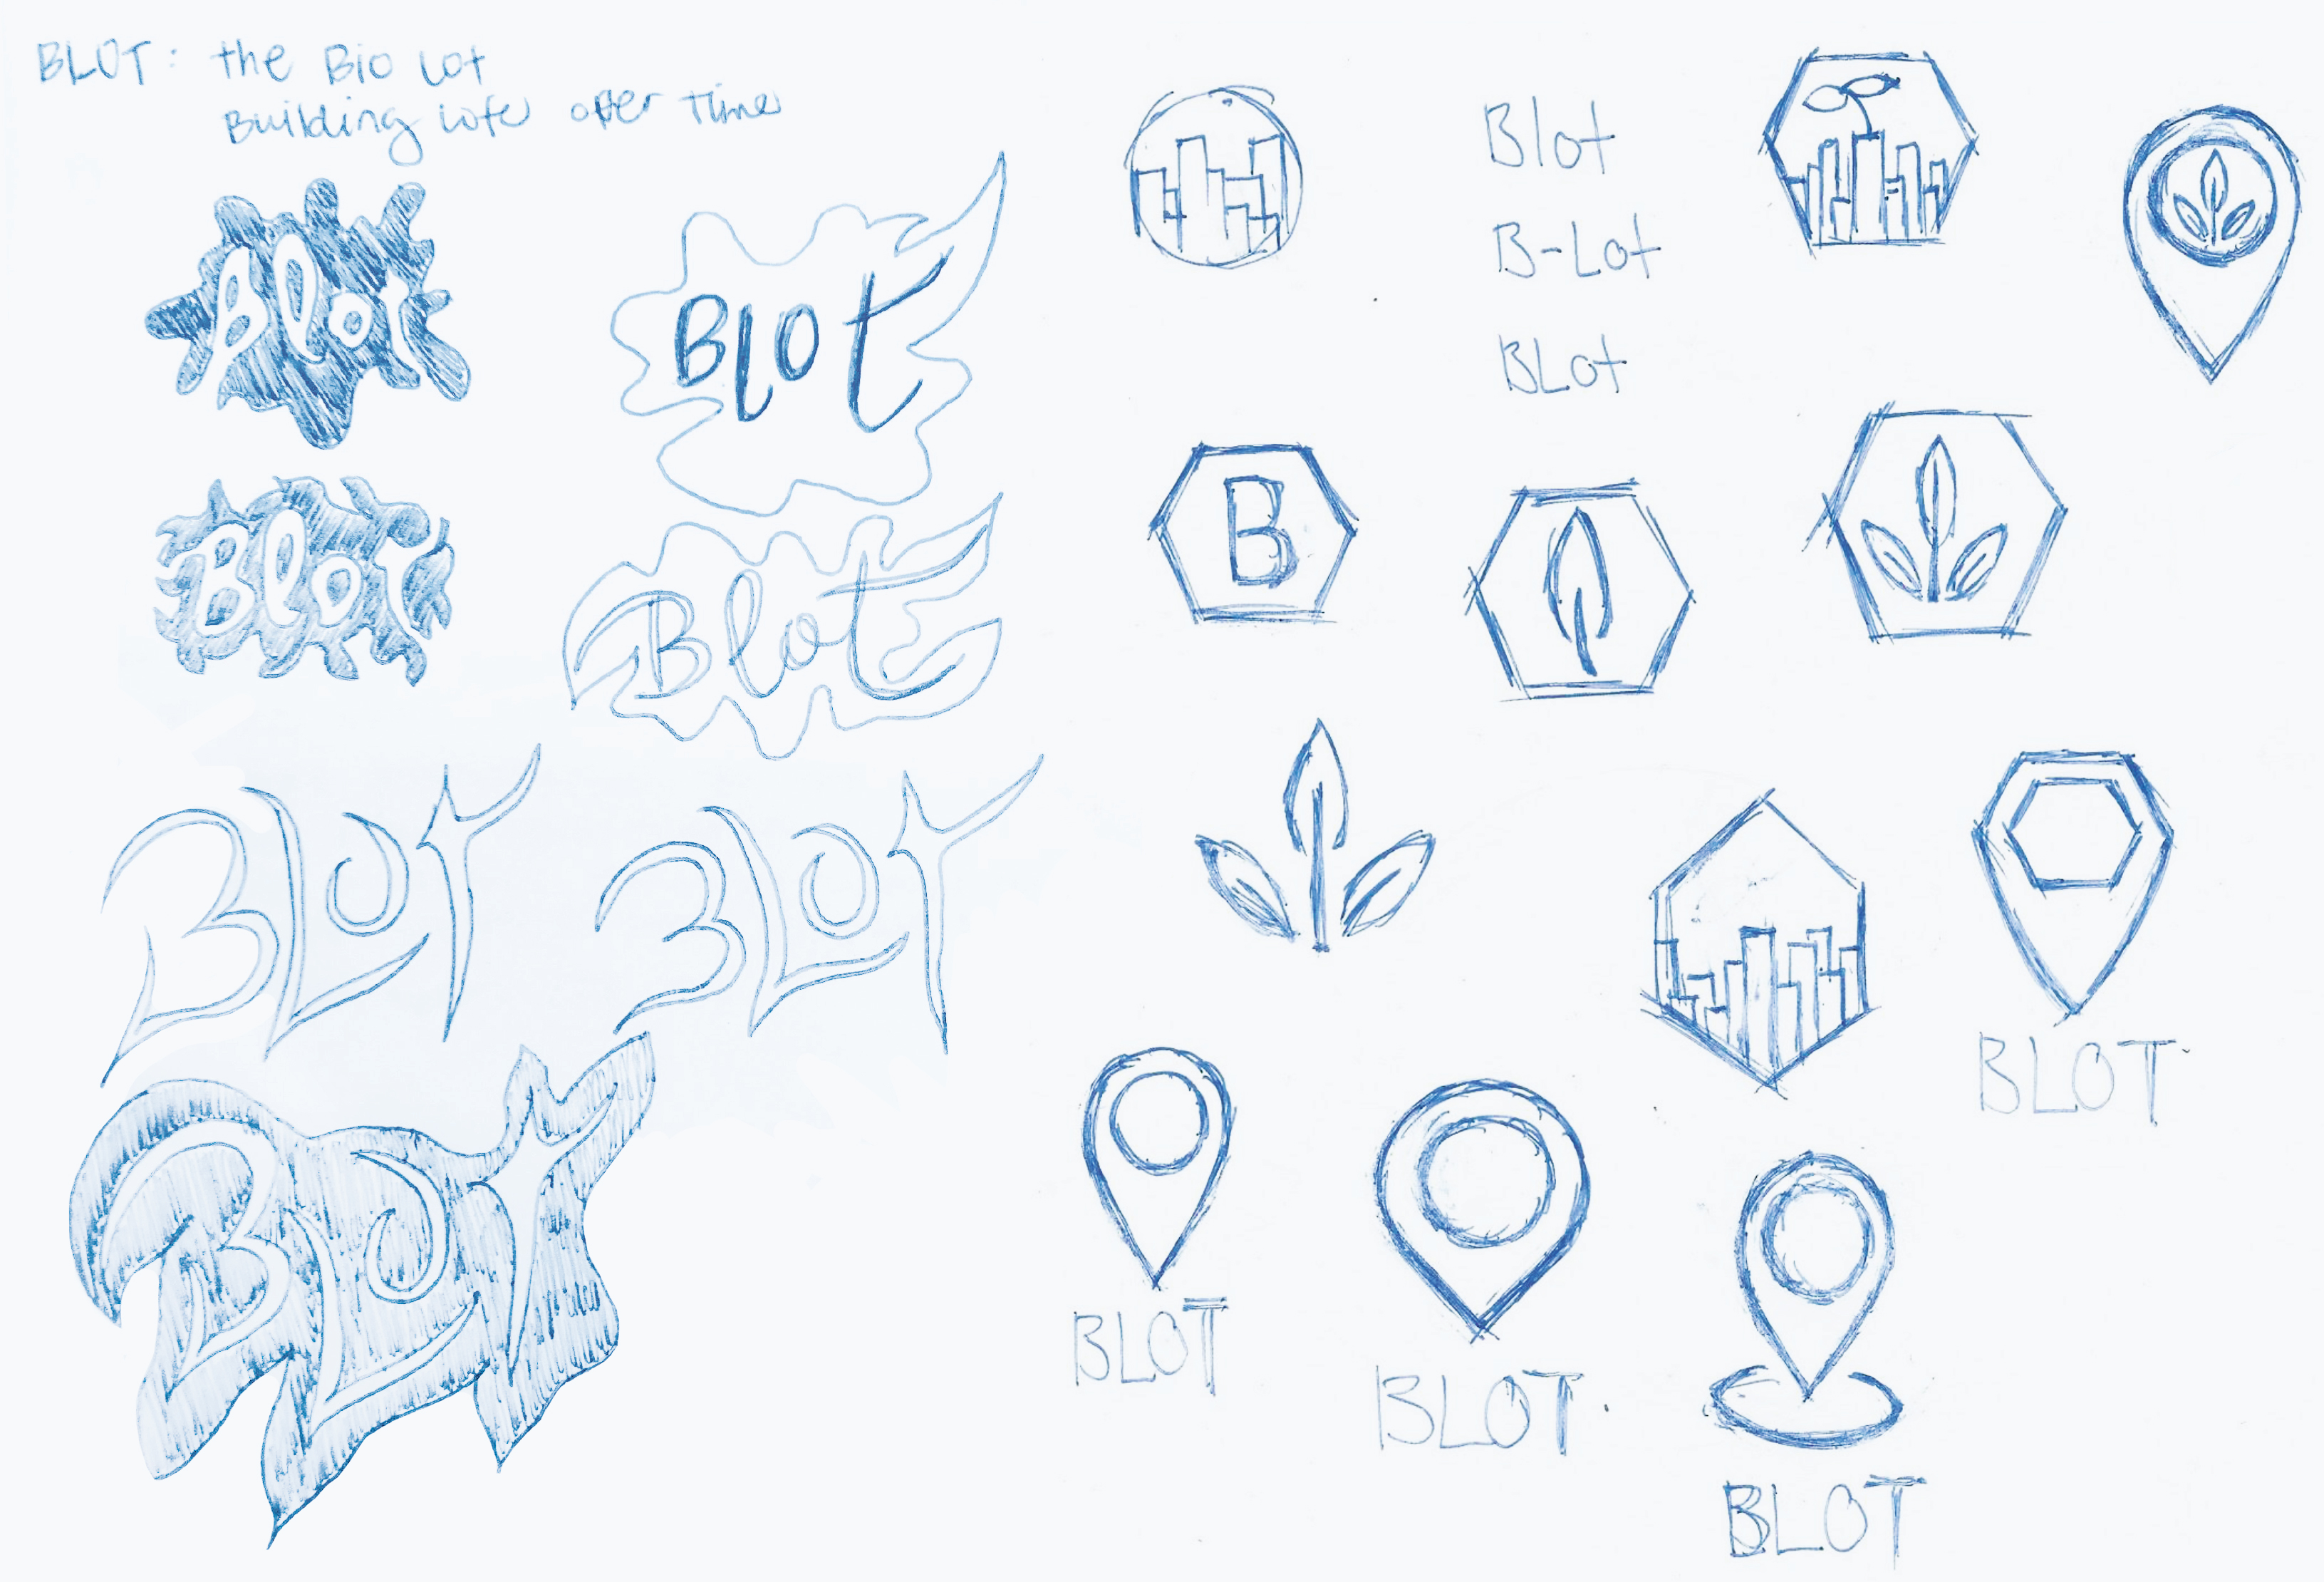 BLOT: the Bio Lot
Building Life over Time
Blot
Blot
Blot
Blot
BLOT
BLOT
BLOT
Blot
B-Lot
BLot
B
BLOT
BLOT
BLOT
BLOT